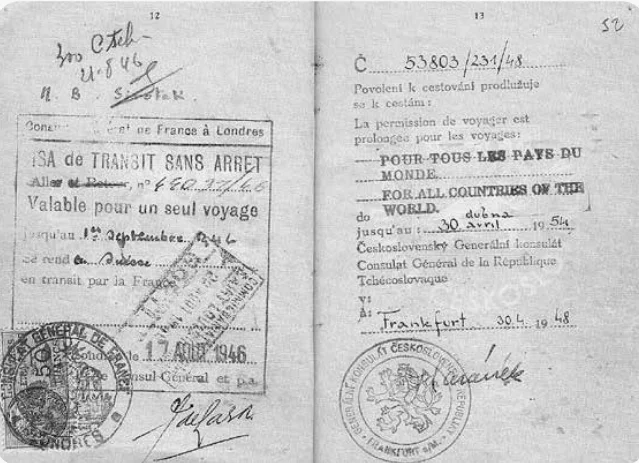 12
300
21.8.46
Consulat Général de France à Londres
VISA de TRANSIT SANS ARRET
Aller et Retour, n°
Valable pour un seul voyage
jusqu'au 1er septembre 1946
se rend en Suisse
en transit par la France
Londres le 17 AOUT 1946
Consul Général et p.a.
CONSULAT GÉNÉRAL DE FRANCE
LONDRES
13
52
Č 53803/231/48
Povolení k cestování prodlužuje
se k cestám:
La permission de voyager est
prolongée pour les voyages:
POUR TOUS LES PAYS DU
MONDE.
FOR ALL COUNTRIES OF THE
WORLD.
do dubna
jusqu'au: 30 avril 1954
Československý Generální konsulát
Consulat Général de la République
Tchécoslovaque
v:
à: Frankfurt 30.4 1948
GENERÁLNÍ KONSULÁT ČESKOSLOVENSKÉ REPUBLIKY
FRANKFURT a/M.